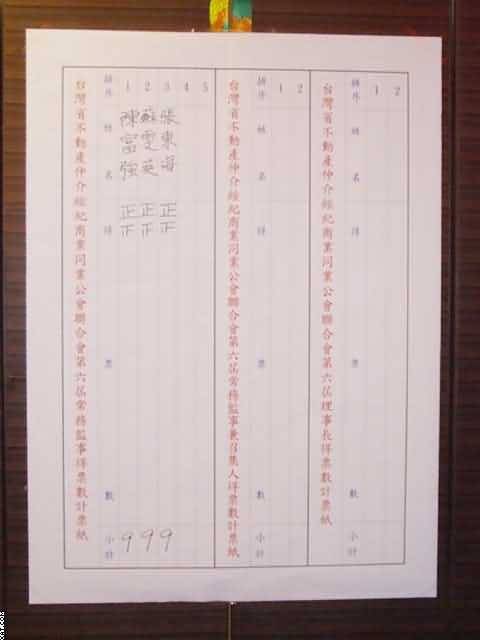 台灣省不動產仲介經紀商業同業公會聯合會第六屆理事長得票數計票紙
排序 姓名 得票數 小計
1
2
台灣省不動產仲介經紀商業同業公會聯合會第六屆常務監事兼召集人得票數計票紙
排序 姓名 得票數 小計
1
2
台灣省不動產仲介經紀商業同業公會聯合會第六屆常務監事得票數計票紙
排序 姓名 得票數 小計
1 陳富強 正正 9
2 蘇雯英 正正 9
3 張東海 正正 9
4
5